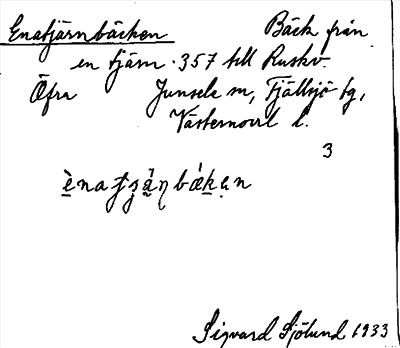 Enatjärnbäcken Bäck från
en tjärn 357 till Ruskv.
Öfra Junsele sn, Fjällsjö tg,
Västernorrl l.
3
Sigvard Sjölund 1933